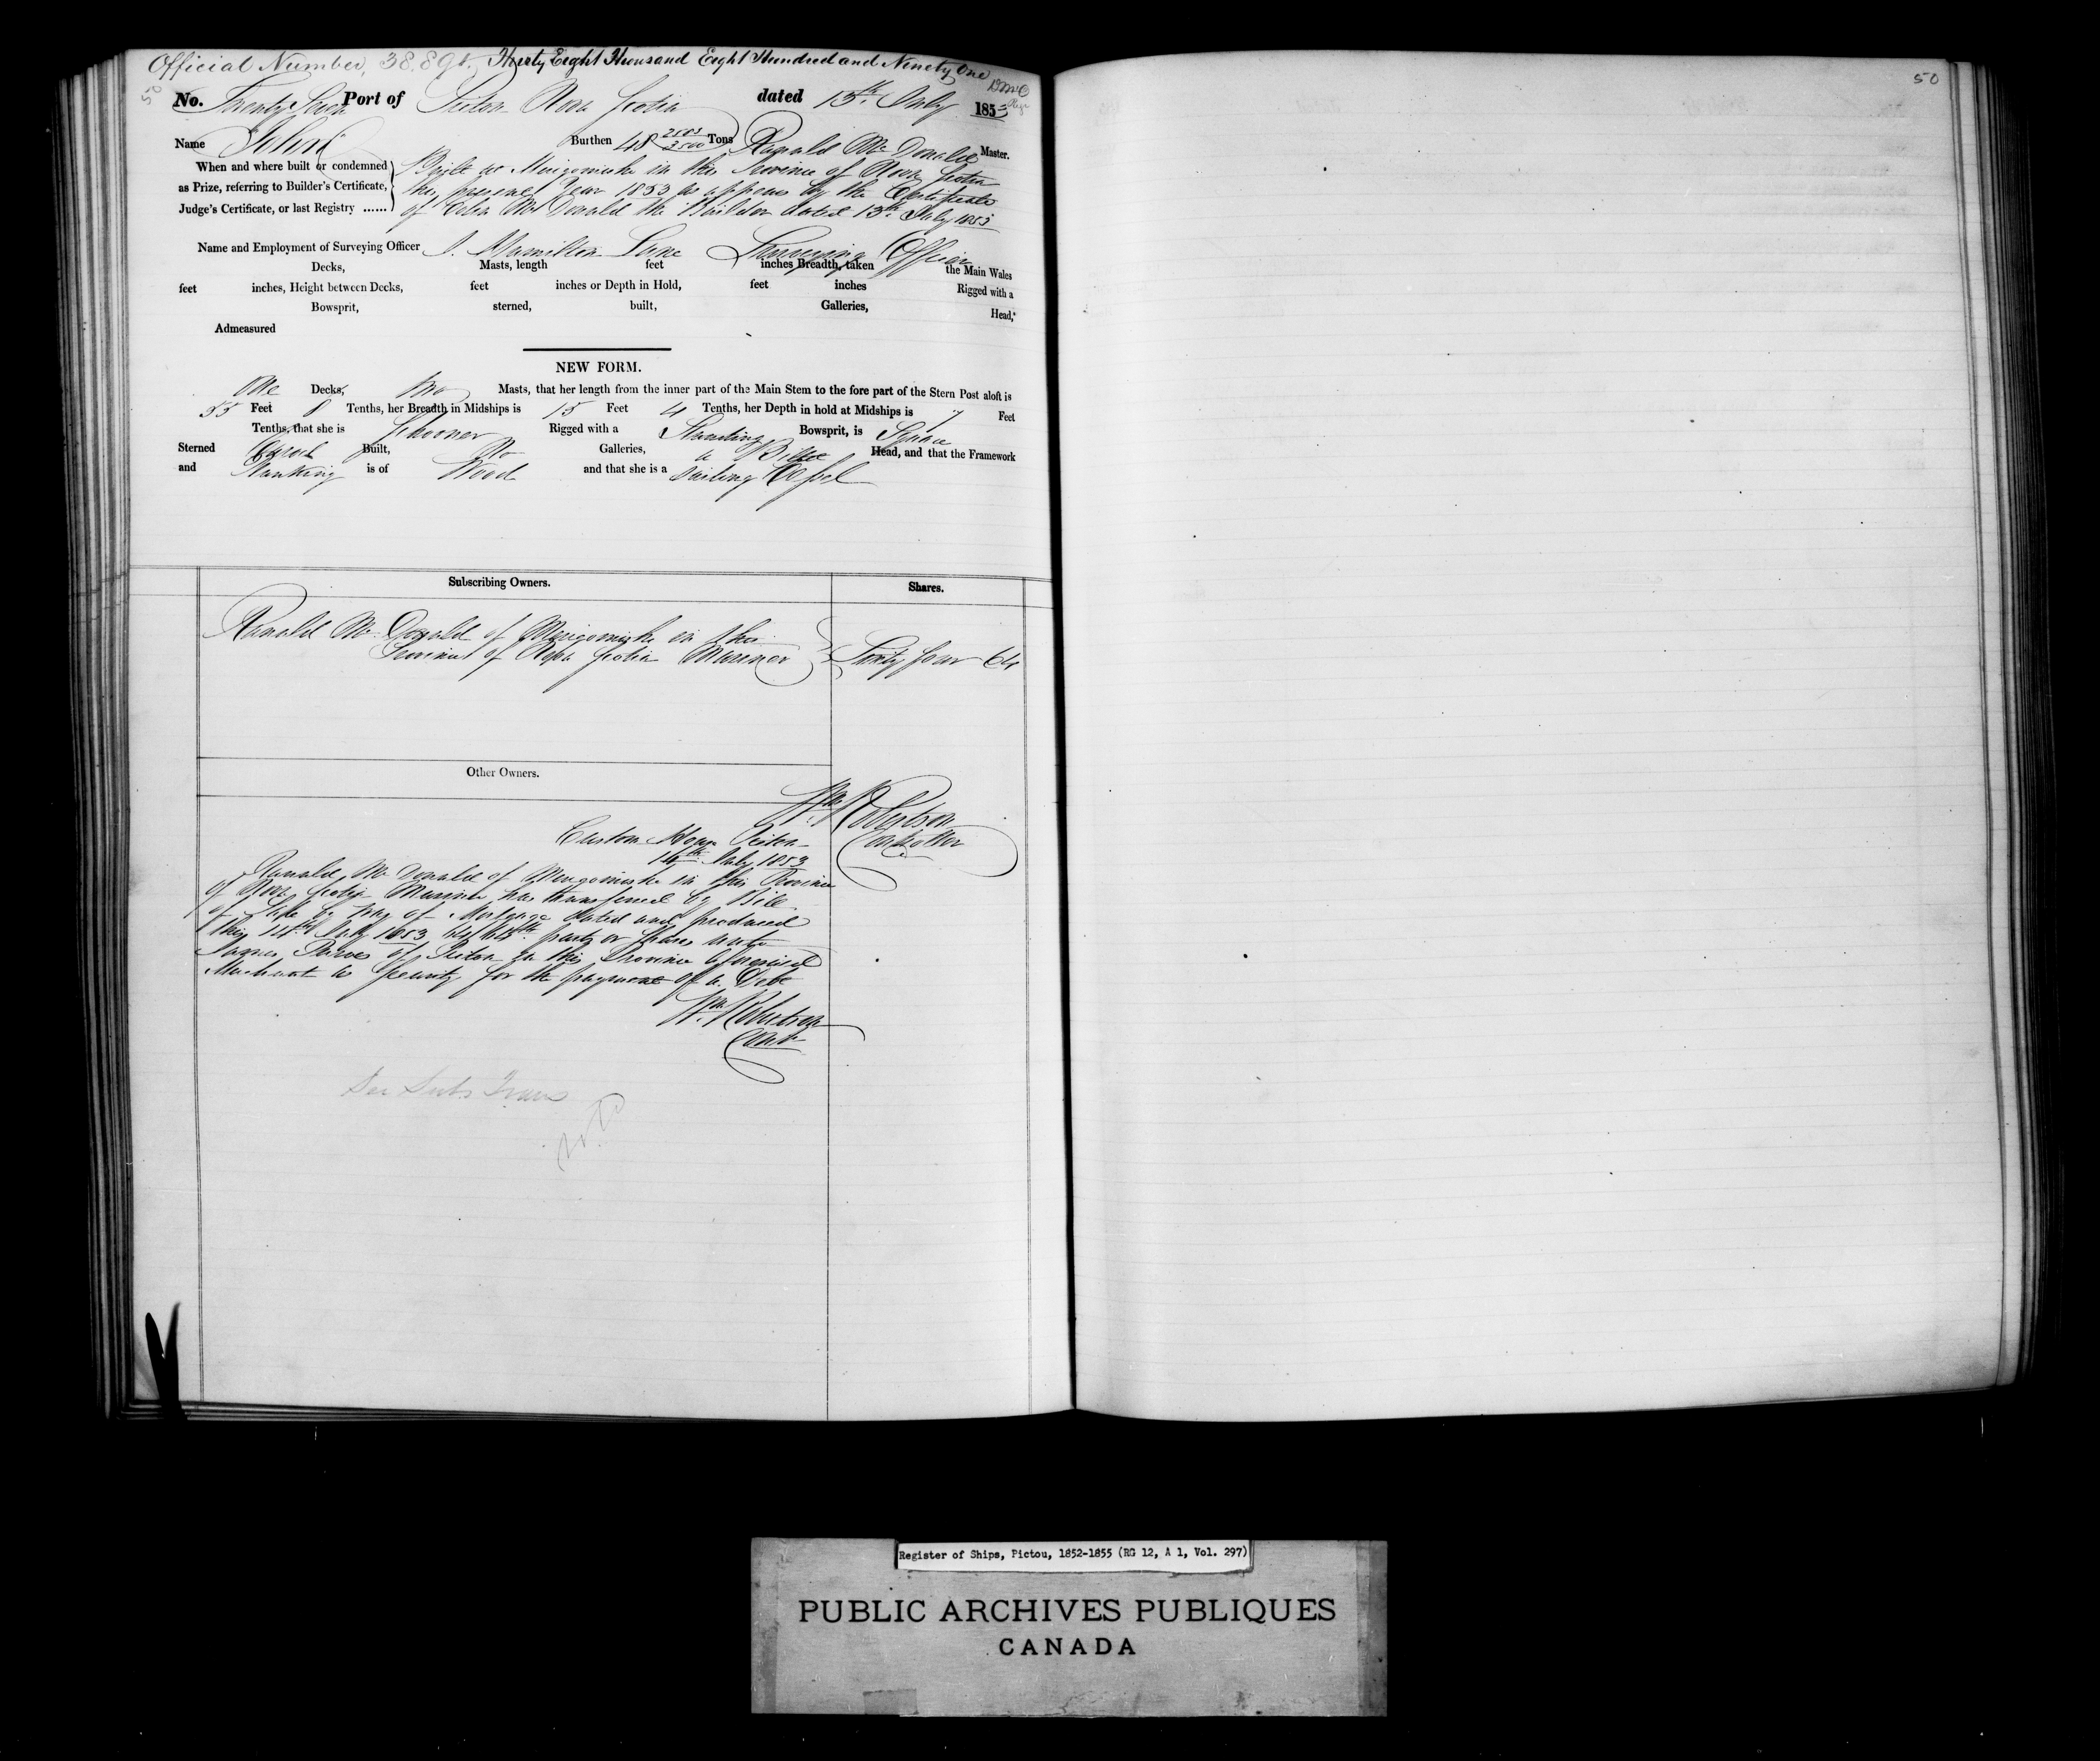 Official Number, 38.891. Thirty Eight Thousand Eight Hundred and Ninety One
50
50
No. Twenty Seven Port of Pictou Nova Scotia dated 13th July 1853
Name Burthen 48 2583/3500 Tons Ranald Mc Donald Master.
When and where built or condemned
as Prize, referring to Builder's Certificate,
Judge's Certificate, or last Registry ......
Built at Merigomishe in this Province of Nova Scotia
this present Year 1853 as appears by the Certificate
of Colin Mc Donald the Builder dated 13th July 1853
Name and Employment of Surveying Officer J. Hamilton Lane Surveying Officer
Decks, Masts, length feet inches Breadth, taken the Main Wales
feet inches, Height between Decks, feet inches or Depth in Hold, feet inches Rigged with a
Bowsprit, sterned, built, Galleries, Head,
Admeasured
NEW FORM.
One Decks, Two Masts, that her length from the inner part of the Main Stem to the fore part of the Stern Post aloft is
55 Feet 8 Tenths, her Breadth in Midships is 15 Feet 4 Tenths, her Depth in hold at Midships is 7 Feet
Tenths, that she is Schooner Rigged with a Standing Bowsprit, is Square
Sterned Carvel Built, No Galleries, a Billet Head, and that the Framework
and Planking is of Wood and that she is a Sailing Vessel
Subscribing Owners. Shares.
Ranald Mc Donald of Merigomishe in this
Province of Nova Scotia Mariner Sixty four 64
Other Owners.
Wm Robertson
Controller
Custom House Pictou
14th July 1853
Ranald Mc Donald of Merigomishe in this Province
of Nova Scotia Mariner has transferred by Bill
of Sale by way of Mortgage dated and produced
this 14th July 1853 64/64th parts or shares unto
James Purves of Pictou in this Province aforesaid
Merchant as Security for the payment of a Debt
Wm Robertson
Contr
See Subs Trans
Register of Ships, Pictou, 1852-1855 (RG 12, A 1, Vol. 297)
PUBLIC ARCHIVES PUBLIQUES
CANADA